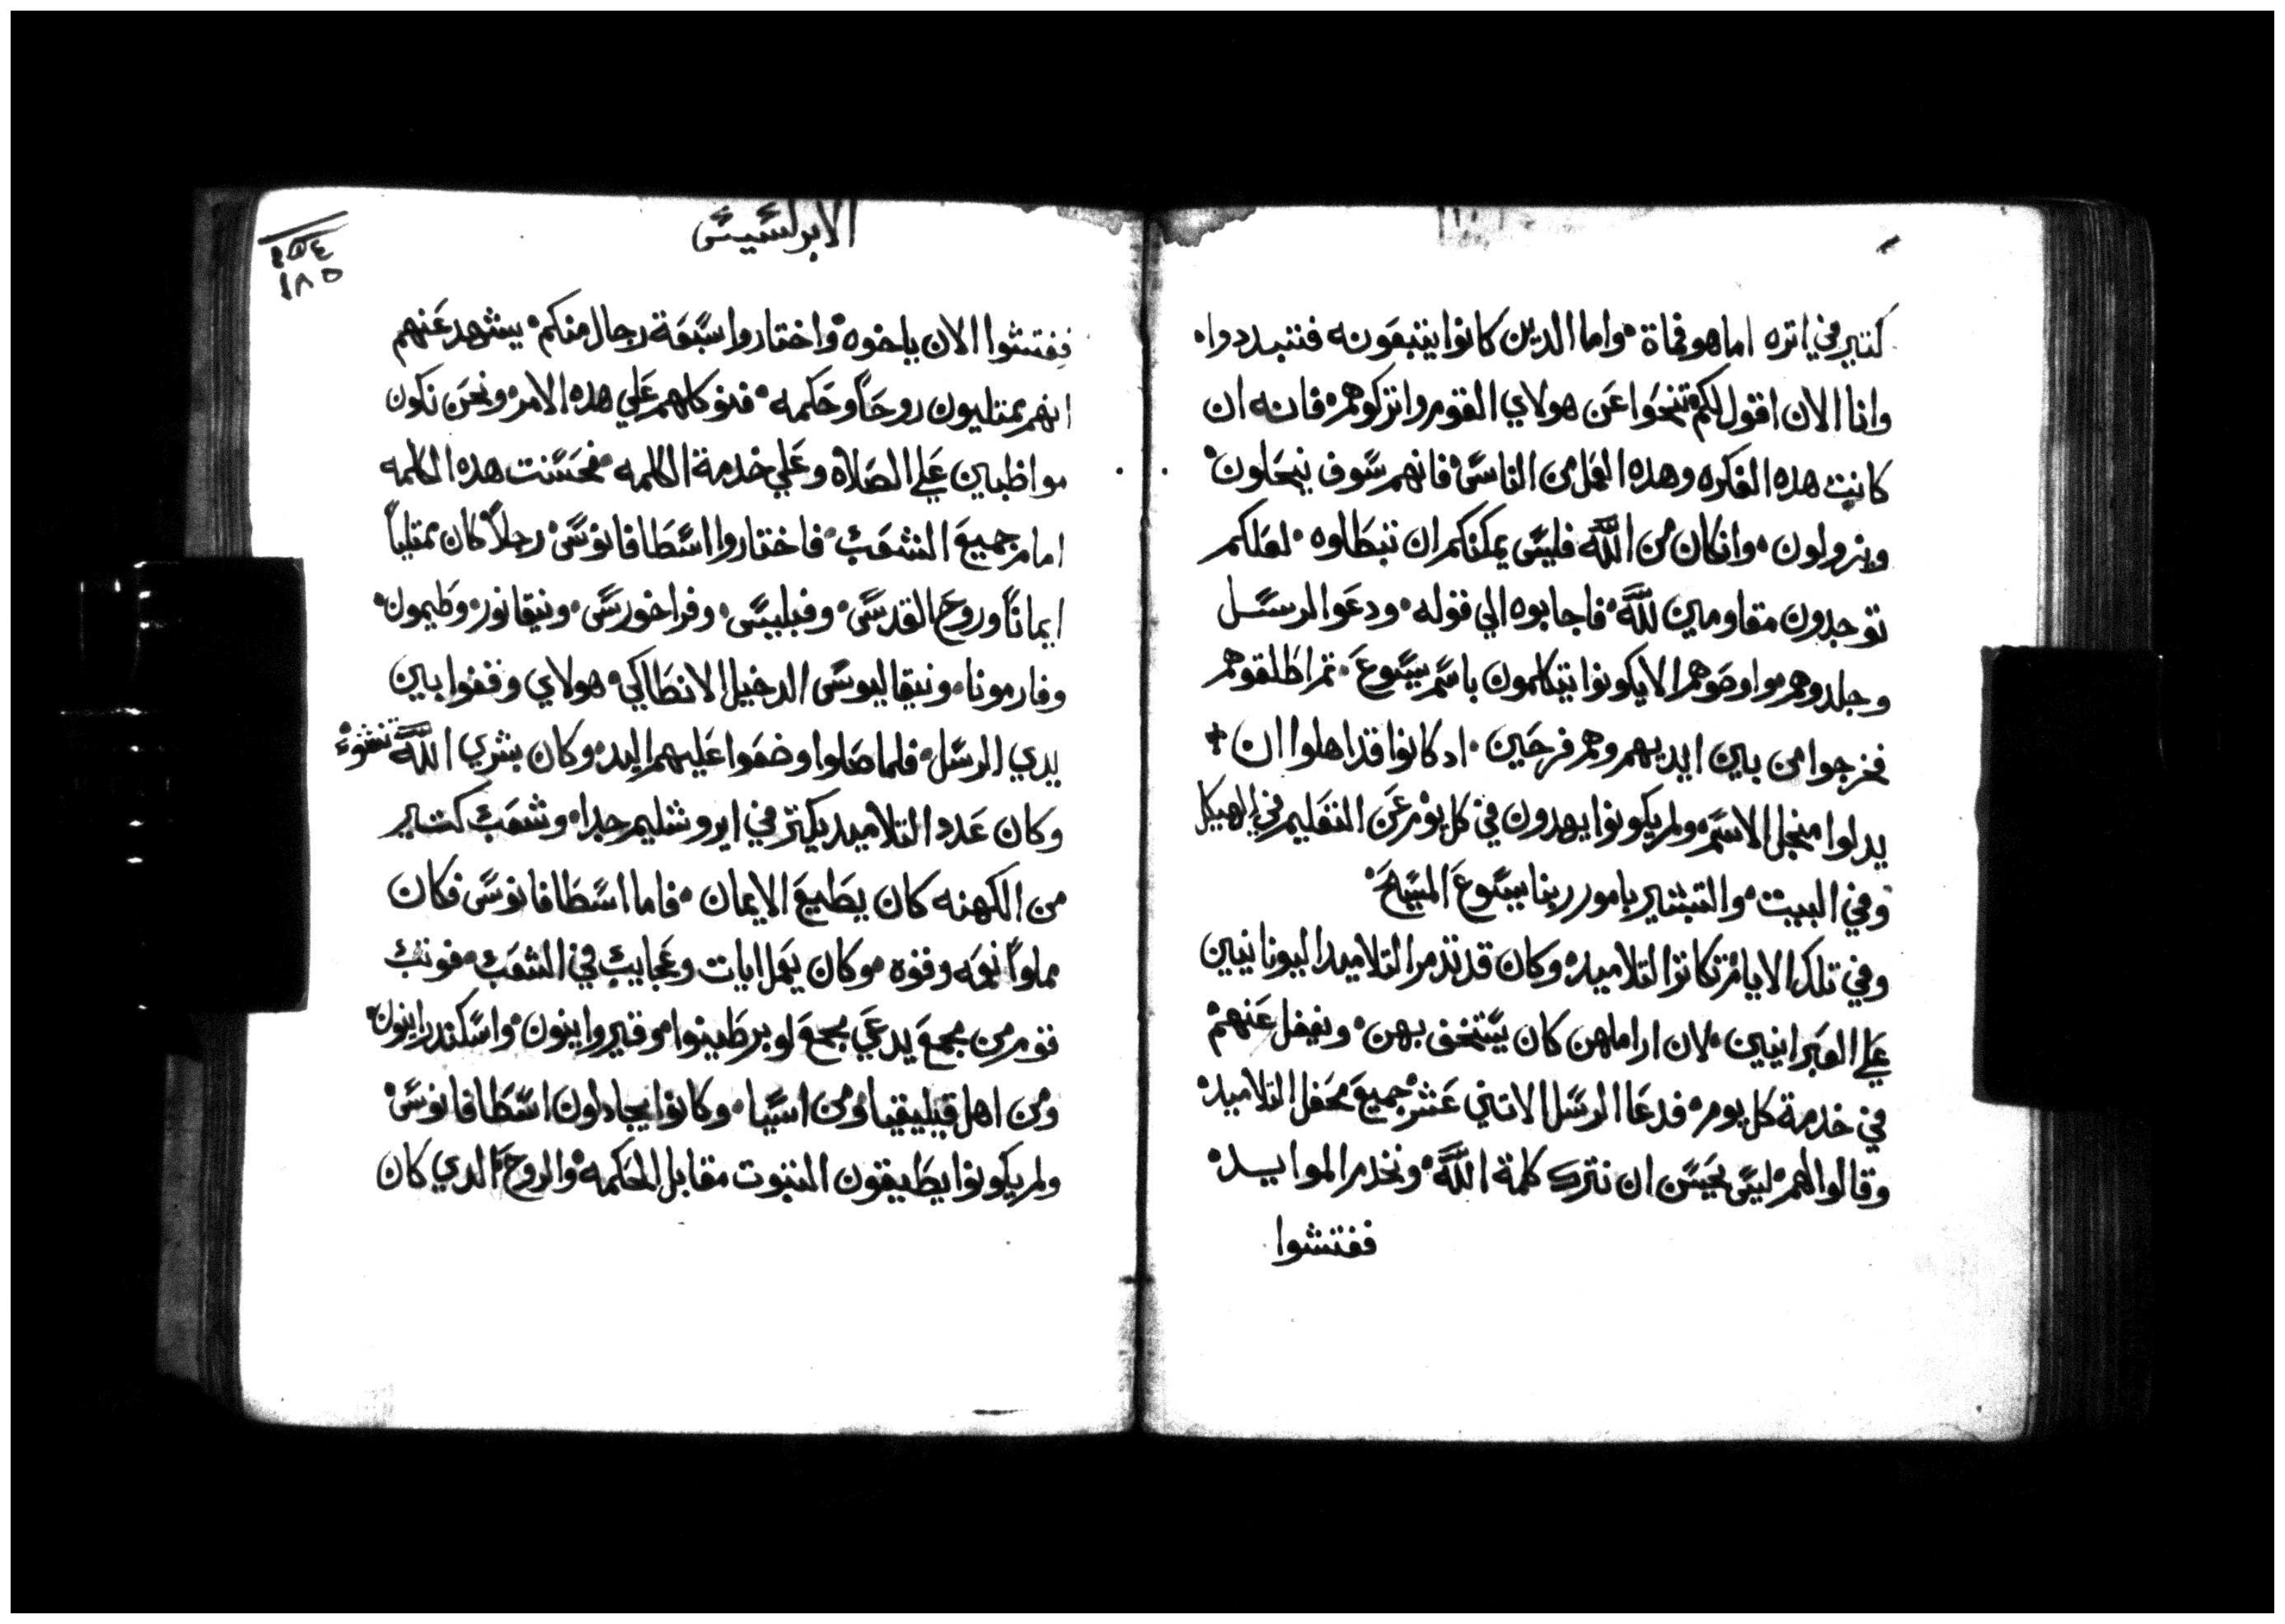 كتير في اتره اما هو فماة وۛاما الدين كانوا يتبعونه فتبددوا
وانا الان اقول لكم تنحوا عن هولاي القوم واتركوهم فانه ان
كانت هده الفكره وهده العمل من الناس فانهم سوف ينحلون
ويزولون وان كان من الله فليس يمكنكم ان تبطلوه لعلكم
توجدون مقاومين لله فاجابوه الي قوله ودعوا الرسل
وجلدوهم واوصوهم الا يكونوا يتكلمون باسم يسوع تم اطلقوهم
فخرجوا من بين ايديهم وهم فرحين ادكانوا قد اهلوا ان
يدلوا منجل الاسم ولم يكونوا يهدون في كل يوم عن التعليم في الهيكل
وفي البيت والتبشير بامور ربنا يسوع المسيح
وفي تلك الايام تكاتر التلاميد وكان قد تدمر التلاميد اليونانيين
علي العبرانيين لان اراملهن كان يستخف بهن ويغفل عنهم
في خدمة كل يوم فدعا الرسل الاتني عشر جميع محفل التلاميد
وقالوا لهم ليس يحسن ان نترك كلمة الله ونخدم الموايد
ففتشوا
الابركسيس
١٨٥
ففتشوا الان ياخوه واختاروا سبعة رجال منكم يشهد عنهم
انهم ممتليون روحاً وحكمه فنوكلهم علي هده الامر ونحن نكون
مواظبين علي الصلاه وعلي خدمة الكلمه فحسنت هده الكلمه
امام جميع الشعب فاختاروا اسطافانوس رجلاً كان ممتلياً
ايماناً وروح القدس وفيلبس وفراخورس ونيقانور وطيمون
وفارمونا ونيقاليوس الدخيل الانطاكي هولاي وقفوا بين
يدي الرسل فلما صلوا وضعوا عليهم اليد وكان بشري الله تنشوء
وكان عدد التلاميد يكتر في ايروشليم جدا وشعب كتير
من الكهنه كان يطيع الايمان فاما اسطافانوس فكان
مملواً نعمه وقوه وكان يعمل ايات وعجايب في الشعب فوتب
قوم من مجمع يدعي مجمع لوبرطينوا وقيروانيون واسكندرانيون
ومن اهل قيليقيا ومن اسيا وكانوا يجادلون اسطافانوس
ولم يكونوا يطيقون التبوت مقابل الحكمه والروح الدي كان